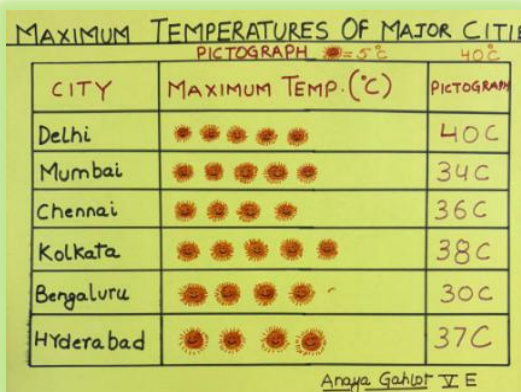 MAXIMUM TEMPERATURES OF MAJOR CITIE
PICTOGRAPH = 5°C 40°C
CITY MAXIMUM TEMP. (°C) PICTOGRAPH
Delhi 40C
Mumbai 34C
Chennai 36C
Kolkata 38C
Bengaluru 30C
HYderabad 37C
Anaya Gahlot V E